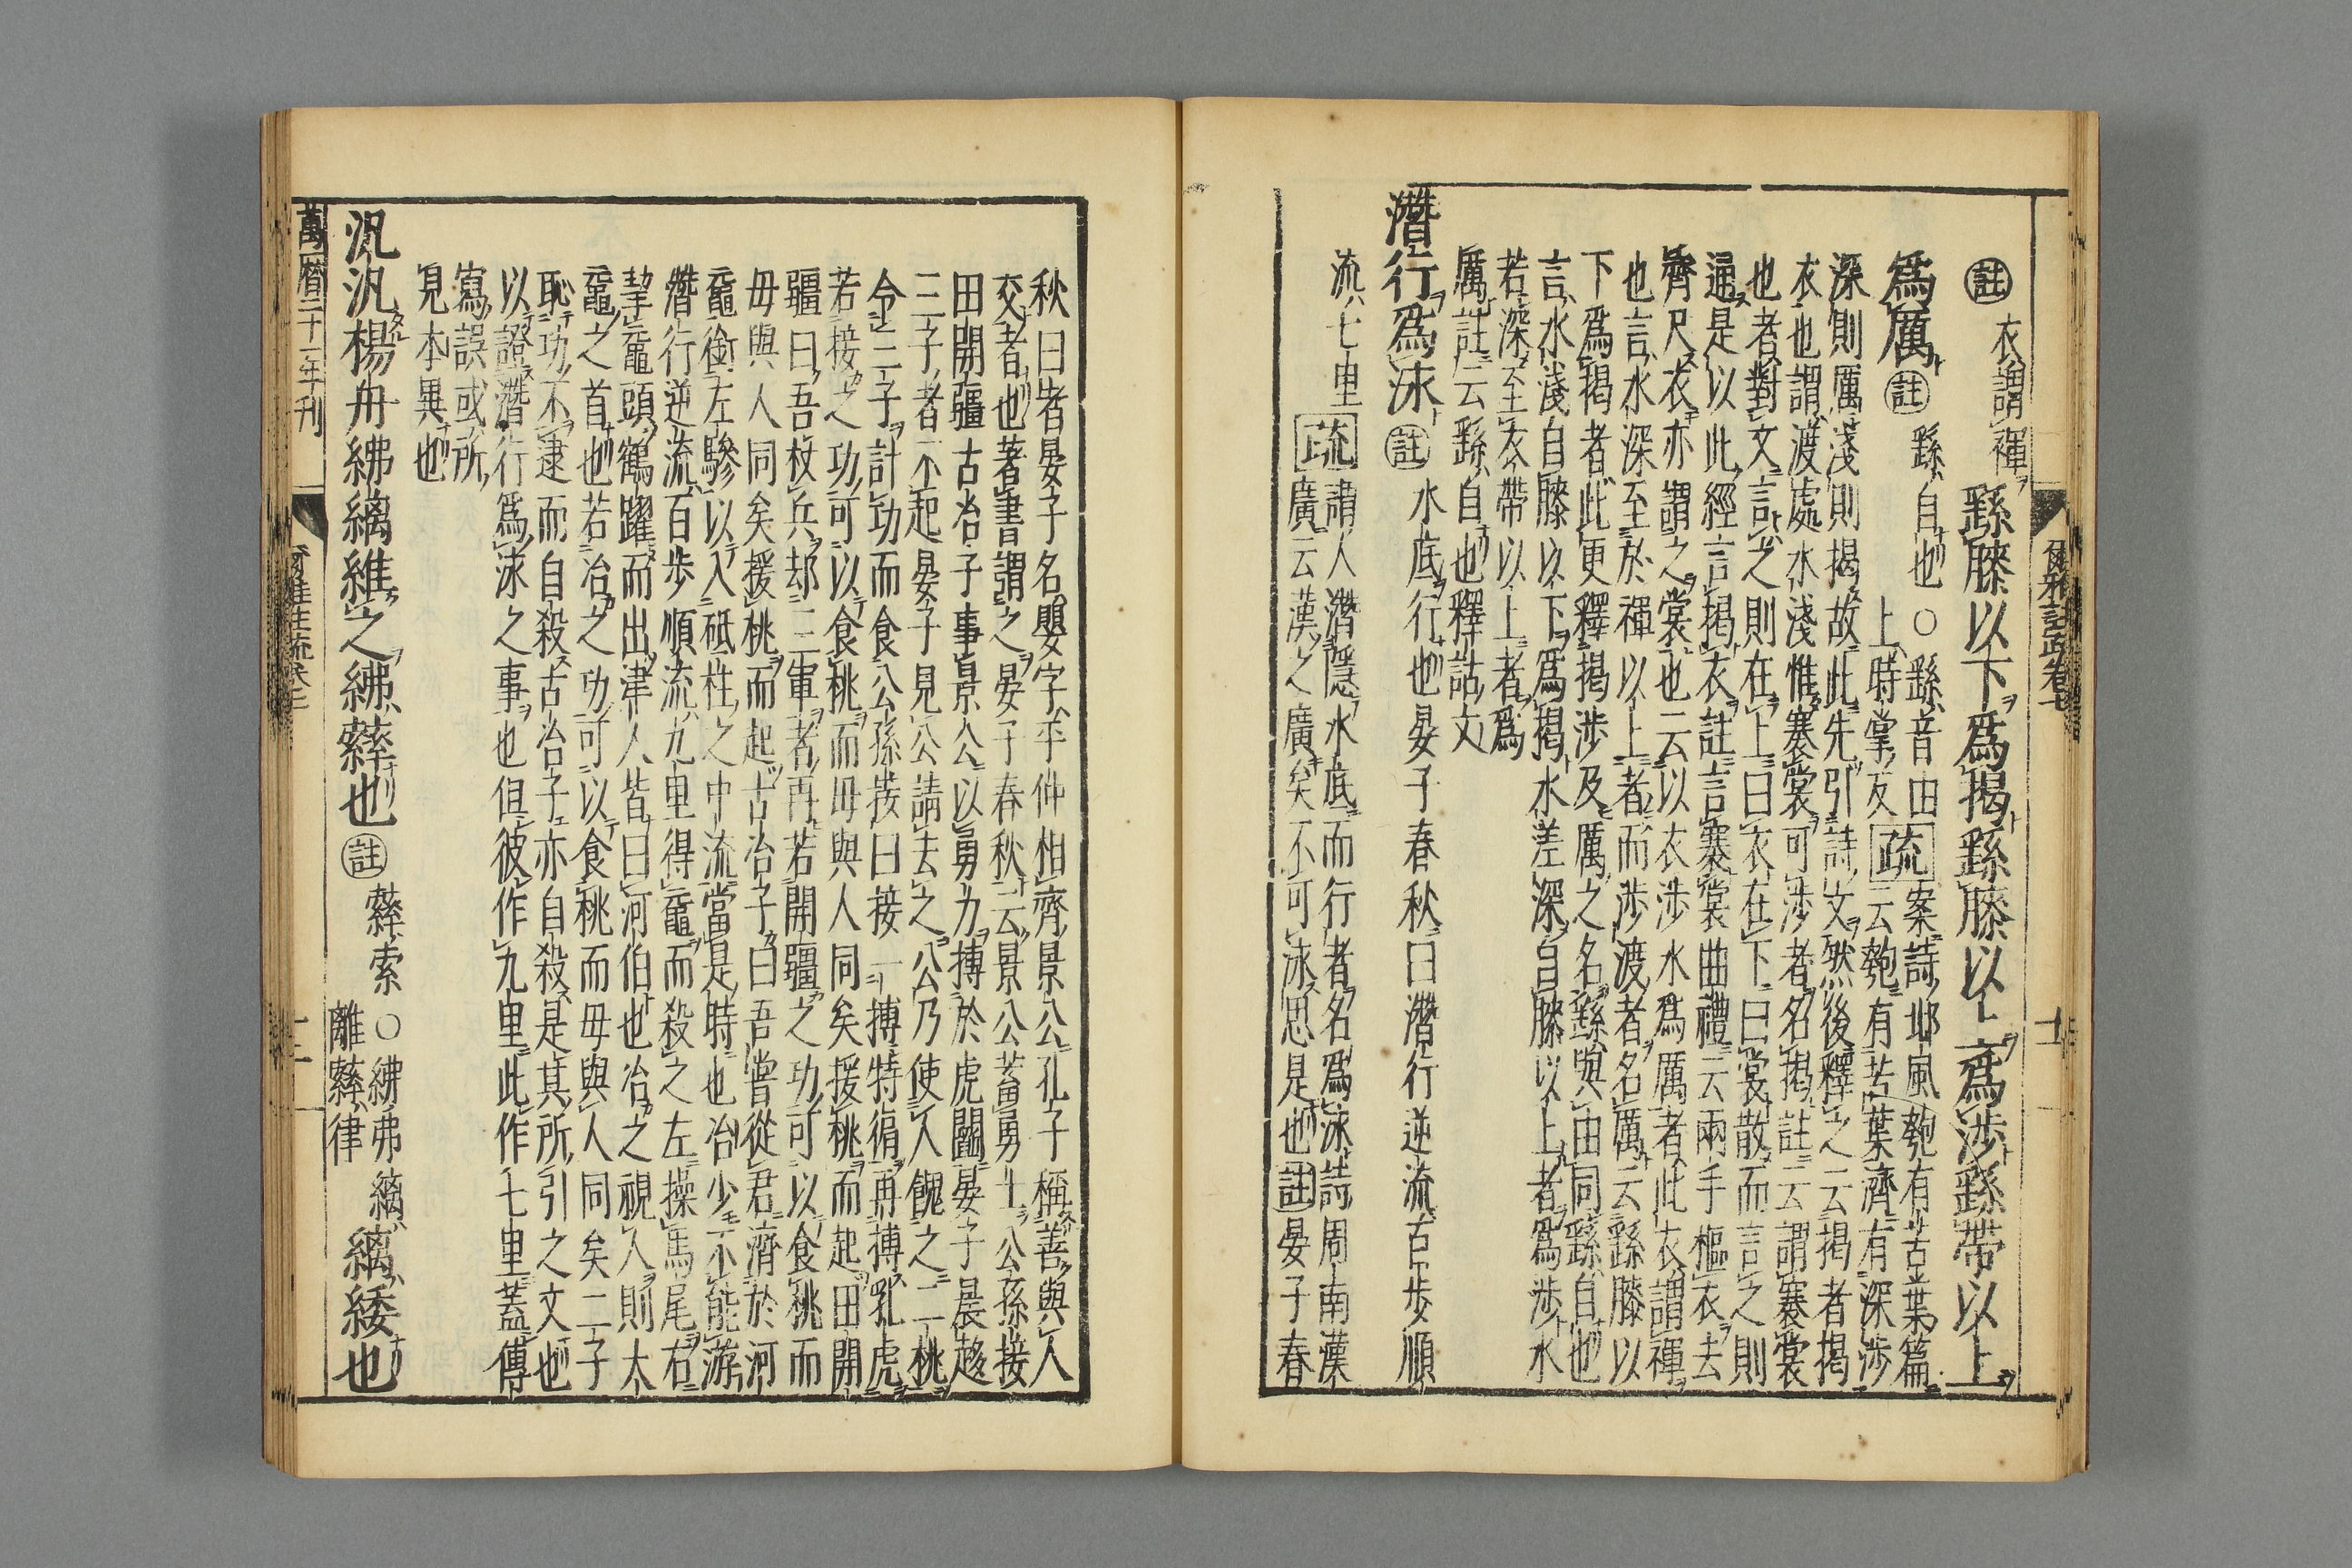 爾雅註疏卷七
十一
註衣謂褌繇膝以下爲揭繇膝以上爲涉繇帶以上
爲厲註繇自也○繇音由上時掌反疏案詩邶風匏有苦葉篇云匏有苦葉濟有深涉
深則厲淺則揭故此先引詩文然後釋之云揭者揭
衣也謂渡處水淺惟褰裳可涉者名揭註云謂褰裳
也者對文言之則在上曰衣在下曰裳散而言之則
通是以此經言揭衣註言褰裳曲禮云兩手樞衣去
齊尺衣亦謂之裳也云以衣涉水爲厲者此衣謂褌
也言水深至於褌以上者而涉渡者名厲云繇膝以
下爲揭者此更釋揭涉及厲之名繇與由同繇自也
言水淺自膝以下爲揭水差深自膝以上者爲涉水
若深至衣帶以上者爲
厲註云繇自也釋詁文
潛行爲泳註水底行也晏子春秋曰潛行逆流百步順
流七里疏謂人潛隱水底而行者名爲泳詩周南漢廣云漢之廣矣不可泳思是也註晏子春
秋曰者晏子名嬰字平仲相齊景公孔子稱善與人
交者也著書謂之晏子春秋云景公蓄勇士公孫接
田開疆古冶子事景公以勇力搏於虎鬬晏子晨趍
三子者不起晏子見公請去之公乃使人餽之二桃
令三子計功而食公孫接曰接一搏特猏再搏乳虎
若接之功可以食桃而毋與人同矣援桃而起田開
疆曰吾杖兵却三軍者再若開疆之功可以食桃而
毋與人同矣援桃而起古冶子曰吾嘗從君濟於河
黿銜左驂以入砥柱之中流當是時也冶少不能游
潛行逆流百步順流九里得黿而殺之左操馬尾右
挈黿頭鶴躍而出津人皆曰河伯也冶之視人則大
黿之首也若冶之功可以食桃而毋與人同矣二子
恥功不逮而自殺古冶子亦自殺是其所引之文也
以證潛行爲泳之事也但彼作九里此作七里蓋傳
寫誤或所
見本異也
汎汎楊舟紼縭維之紼䋏也註䋏索○紼弗縭離䋏律縭緌也
萬曆二十一年刊
爾雅註疏卷七